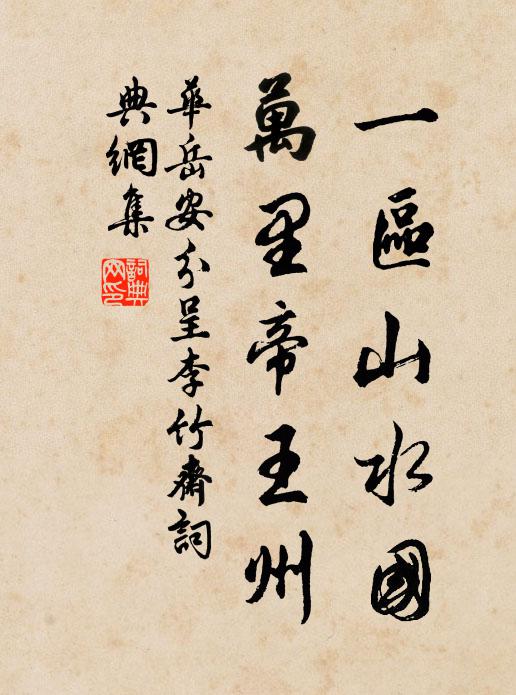 一區山水國
萬里帝王州
華岳安分呈李竹齋詞
典網集
詞典
网印